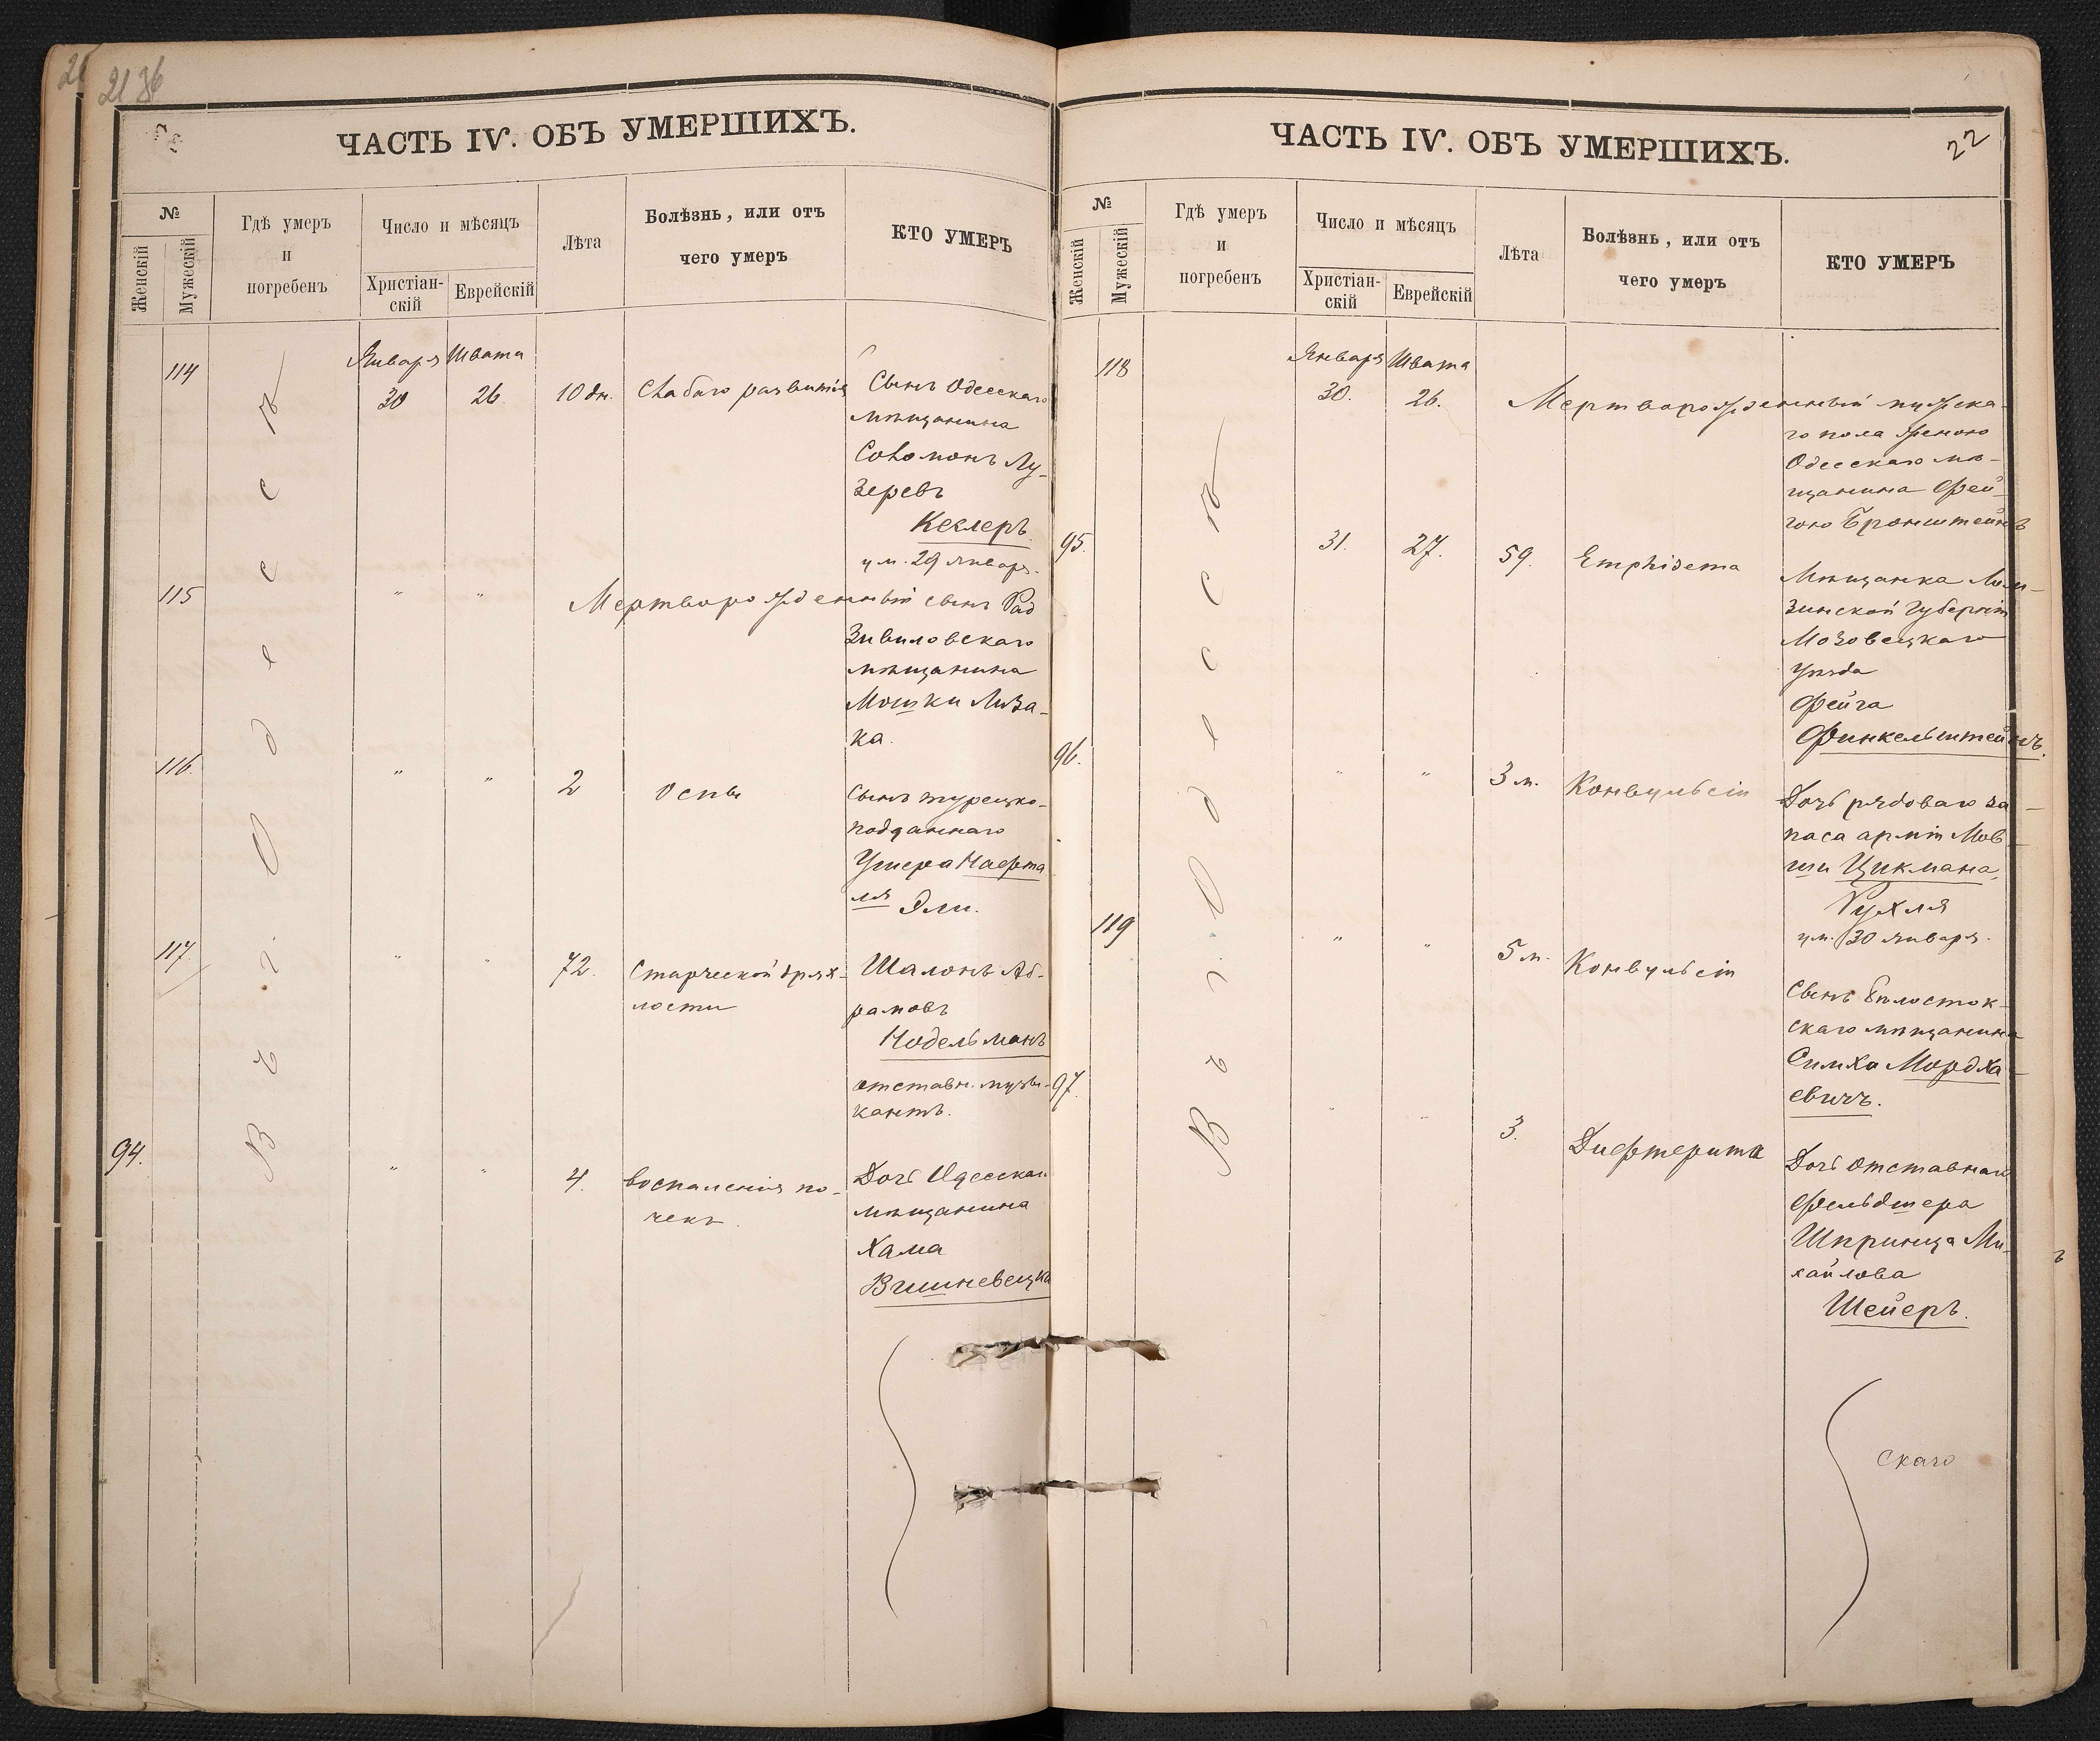 21 36
ЧАСТЬ IV. ОБЪ УМЕРШИХЪ.
№
Женскій
Мужескій
Гдѣ умеръ
и
погребенъ
Число и мѣсяцъ
Христіан-
скій
Еврейскій
Лѣта
Болѣзнь, или отъ
чего умеръ
КТО УМЕРЪ
Въ г. Одессѣ
Января Швата
114 30 26. 10 дн. Слабаго развитія Сынъ Одесскаго
мѣщанина
Соломонъ Лу-
зеревъ
Кеглеръ.
ум. 29 января.
115 " " Мертворожденный сынъ Рад
зивиловскаго
мѣщанина
Мошки Лиза-
ка.
116. " " 2 Оспы Сынъ турецко-
подданнаго
Ушера Нафта
ля Эли.
117 " " 72. Старческой дрях-
лости
Шалонъ Аб-
рамовъ
Нодельманъ
отставн. музы-
кантъ.
94. " " 4. воспаленія по-
чекъ
Дочь Одесскаго
мѣщанина
Хама
Вишневецка
ЧАСТЬ IV. ОБЪ УМЕРШИХЪ.
22
№
Женскій
Мужескій
Гдѣ умеръ
и
погребенъ
Число и мѣсяцъ
Христіан-
скій
Еврейскій
Лѣта
Болѣзнь, или отъ
чего умеръ
КТО УМЕРЪ
Въ г. Одессѣ
Января Швата
118 30. 26. Мертворожденный мужска-
го пола женою
Одесскаго мѣ-
щанина Фей-
гою Бронштейнъ
95. 31. 27. 59. Emphisema Мѣщанка Лом-
зинской Губерніи
Мозовецкаго
Уѣзда
Фейга
Финкельштейнъ.
96. " " 3 м. Конвульсіи Дочь рядоваго за-
паса арміи Мов-
ши Цикмана,
Рухля
ум. 30 января.
119 " " 5 м. Конвульсіи Сынъ Бѣлосток-
скаго мѣщанина
Симха Мордха-
евичъ.
97. " " 3. Дифтерита Дочь отставнаго
фельдшера
Шпринца Ми-
хайлова
Шейеръ.
скаго